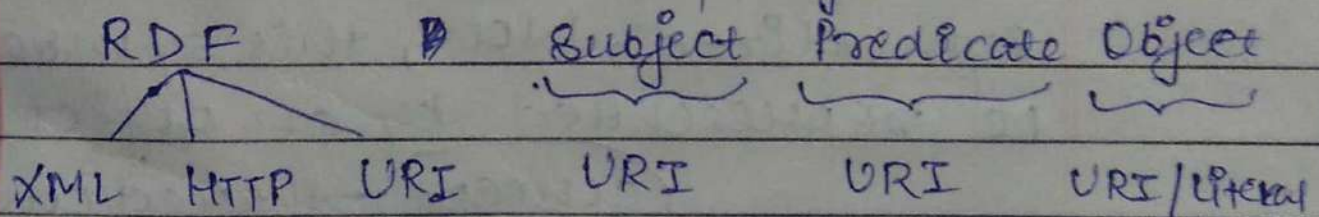 RDF Subject Predicate Object
XML HTTP URI URI URI URI/Literal